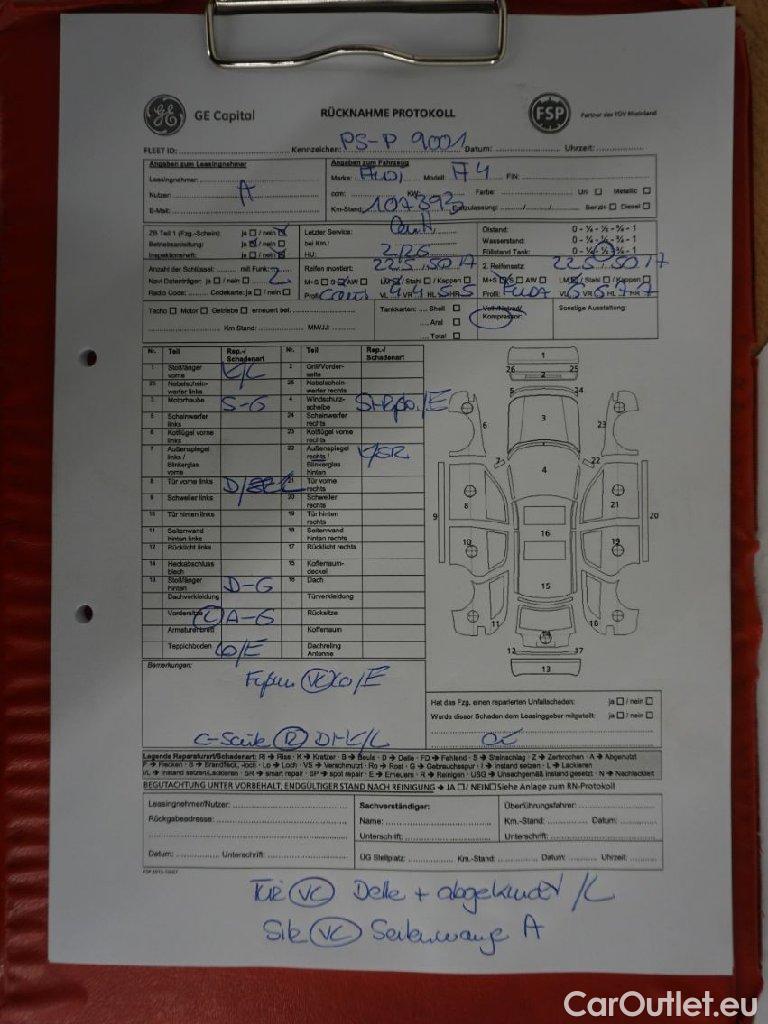 GE Capital
RÜCKNAHME PROTOKOLL
FSP
Partner des TÜV Rheinland
FLEET ID: Kennzeichen: PS-P 9001 Datum: Uhrzeit:
Angaben zum Leasingnehmer
Leasingnehmer:
Nutzer: A
E-Mail:
Angaben zum Fahrzeug
Marke: Audi Modell: A4 FIN:
ccm: KW: Farbe: Uni Metallic
Km-Stand: 107393 Erstzulassung: Benzin Diesel
ZB Teil 1 (Fzg.-Schein): ja / nein
Betriebsanleitung: ja / nein
Inspektionsheft: ja / nein
Letzter Service:
bei Km:
HU:
Ölstand: 0 - ¼ - ½ - ¾ - 1
Wasserstand: 0 - ¼ - ½ - ¾ - 1
Füllstand Tank: 0 - ¼ - ½ - ¾ - 1
Anzahl der Schlüssel: mit Funk: 2
Navi Datenträger: ja / nein
Radio Code: Codekarte: ja / nein
Reifen montiert: 225/50 17
M+S O AW LM Stahl / Kappen
Profil: Conti VL VR HL HR
2. Reifensatz: 225/50 17
M+S S AW LM Stahl / Kappen
Profil: VL VR HL HR 6 6 7 7
Tacho Motor Getriebe erneuert bei
Km Stand: MM/JJ:
Tankkarten: Shell
Aral
Total
Voll-/Notrad/
Kompressor:
Sonstige Ausstattung:
Nr. Teil Rep.-/ Schadenart Nr. Teil Rep.-/ Schadenart
1 Stoßfänger vorne K/L 2 Grill/Vorderseite
25 Nebelscheinwerfer links 26 Nebelscheinwerfer rechts
3 Motorhaube S-G 4 Windschutzscheibe
5 Scheinwerfer links 24 Scheinwerfer rechts
6 Kotflügel vorne links 23 Kotflügel vorne rechts
7 Außenspiegel links / Blinkerglas vorne 22 Außenspiegel rechts / Blinkerglas hinten K/SR
8 Tür vorne links 21 Tür vorne rechts
9 Schweller links 20 Schweller rechts
10 Tür hinten links 19 Tür hinten rechts
11 Seitenwand hinten links 18 Seitenwand hinten rechts
12 Rücklicht links 17 Rücklicht rechts
14 Heckabschluss blech 15 Kofferraum-deckel
13 Stoßfänger hinten D-G 16 Dach
Dachverkleidung Türverkleidung
Vordersitze L A-G Rücksitze
Armaturenbrett Kofferraum
Teppichboden Lo/E Dachreling Antenne
1
26 2 25
5 24
6 3 23
7 22
4
8 21
9 16 20
10 19
15
11 18
14
12 17
13
Bemerkungen:
VL Lo/E
C-Säule R D+K/L
Hat das Fzg. einen reparierten Unfallschaden: ja / nein
Wurde dieser Schaden dem Leasinggeber mitgeteilt: ja / nein
Legende Reparaturart/Schadenart: RI → Riss - K → Kratzer - B → Beule - D → Delle - FD → Fehlend - S → Steinschlag - Z → Zerbrochen - A → Abgenutzt
F → Flecken - B → Brandfleck, -loch - Lo → Loch - VS → Verschmutzt - Ro → Rost - G → Gebrauchsspur - I → Instand setzen - L → Lackieren
I/L → Instand setzen/Lackieren - SR → smart repair - SP → spot repair - E → Erneuern - R → Reinigen - USG → Unsachgemäß instand gesetzt - N → Nachlackiert
BEGUTACHTUNG UNTER VORBEHALT, ENDGÜLTIGER STAND NACH REINIGUNG → JA / NEIN Siehe Anlage zum RN-Protokoll
Leasingnehmer/Nutzer:
Rückgabeadresse:
Datum: Unterschrift:
Sachverständiger:
Name:
Unterschrift:
Überführungsfahrer:
Km.-Stand: Datum:
Unterschrift:
ÜG Stellplatz: Km.-Stand: Datum: Uhrzeit:
Tür VL Delle + abgekundet /L
Sitz VL Seitenwange A
CarOutlet.eu